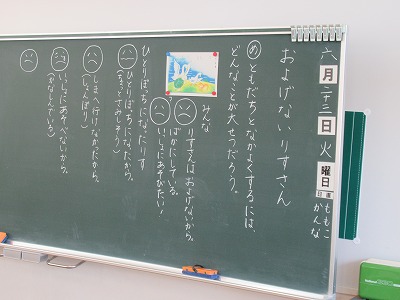 六月二十三日火曜日
日直
ももこ
かんな
およげないりすさん
めともだちとなかよくするには、
どんなことが大せつだろう。
みんな
りすさんはおよげないから。
ばかにしている。
いっしょにあそびたい！
ひとりぼっちになったりす
ひとりぼっちになったから。
(きょうさみしそう)
しまへ行けなかったから。
(しょんぼり)
いっしょにあそべないから。
(かなしんでいる)